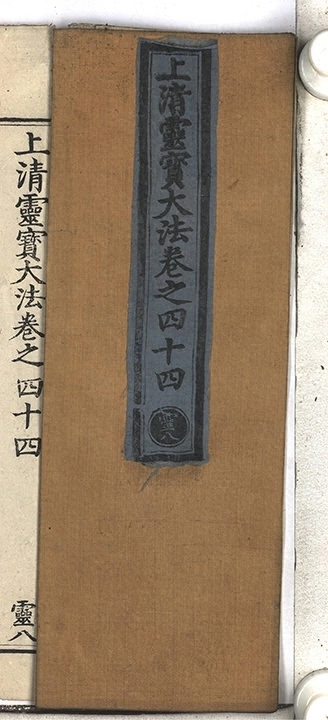 上清靈寳大法卷之四十四
靈八
上清靈寳大法卷之四十四
靈八